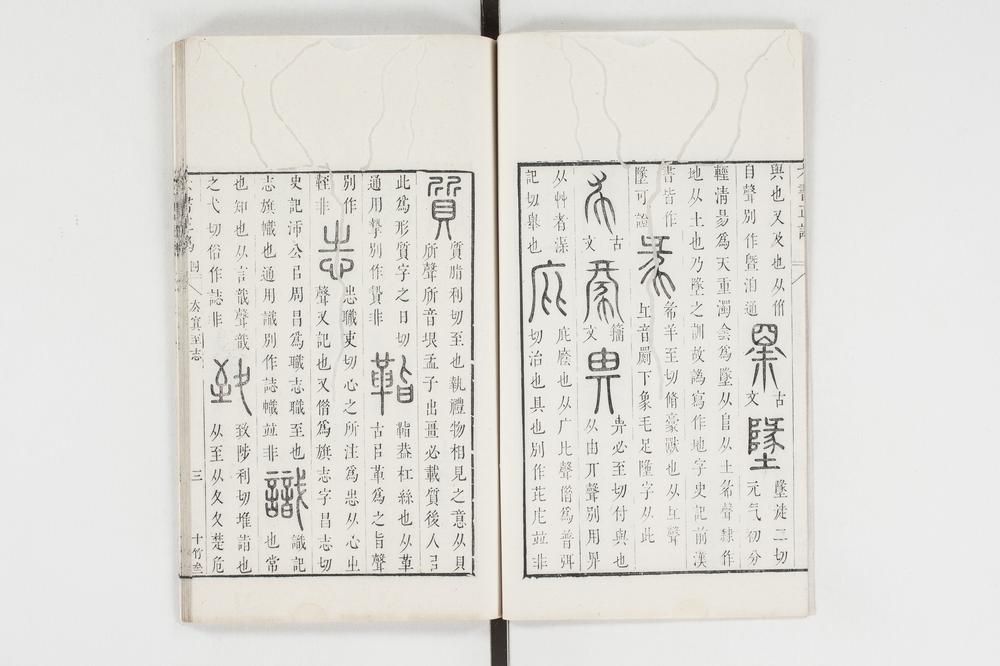 與也又及也从㐺臮古墜墜徒二切
自聲別作曁洎通文元气初分
輕清昜為天重濁侌為墜从𨸏从土㒸聲隸作
地从土也乃墜之訓故譌寫作地字史記前漢
書皆作㣇㣇羊至切脩豪獸也从彑聲
墜可證彑音罽下象毛足𨽸字从此
古籀畀畀必至切付與也
文文从由丌聲別用畀
从艸者湥庇庇廕也从广比聲俗為普弭
記切舉也切治也具也別作芘庀竝非
質質脂利切至也執禮物相見之意从貝
所聲所音垠孟子出畺必載質後人㠯
此爲形質字之日切䩢䩢葢杠絲也从革
通用摯別作贄非古㠯革爲之旨聲
別作志志職吏切心之所注爲志从心㞢
輊非聲又記也又俗爲旗志字昌志切
史記沛公㠯周昌爲職志職至也識識記
志旗幟也通用識別作誌幟竝非也常
也知也从言戠聲戠致致陟利切堆詣也
之弋切俗作誌非从至从夊夊楚危
去寘至志 三 十竹齋